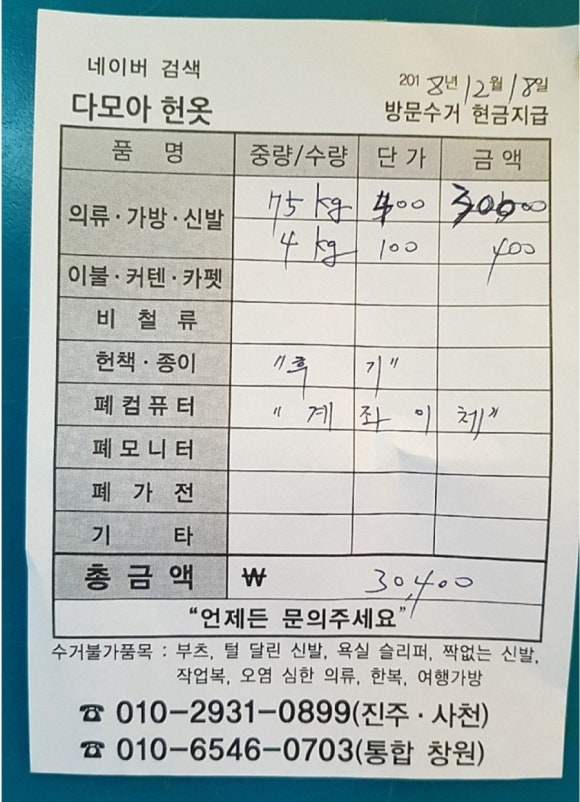 네이버 검색
2018년 12월 18일
다모아 헌옷
방문수거 현금지급
품 명 중량/수량 단 가 금 액
의류·가방·신발 75 kg 400 30,000
4 kg 100 400
이불·커텐·카펫
비 철 류
헌책·종이 "후 기"
폐컴퓨터 "계 좌 이 체"
폐모니터
폐 가 전
기 타
총 금 액 ₩ 30,400
"언제든 문의주세요"
수거불가품목 : 부츠, 털 달린 신발, 욕실 슬리퍼, 짝없는 신발,
작업복, 오염 심한 의류, 한복, 여행가방
☎ 010-2931-0899(진주·사천)
☎ 010-6546-0703(통합 창원)